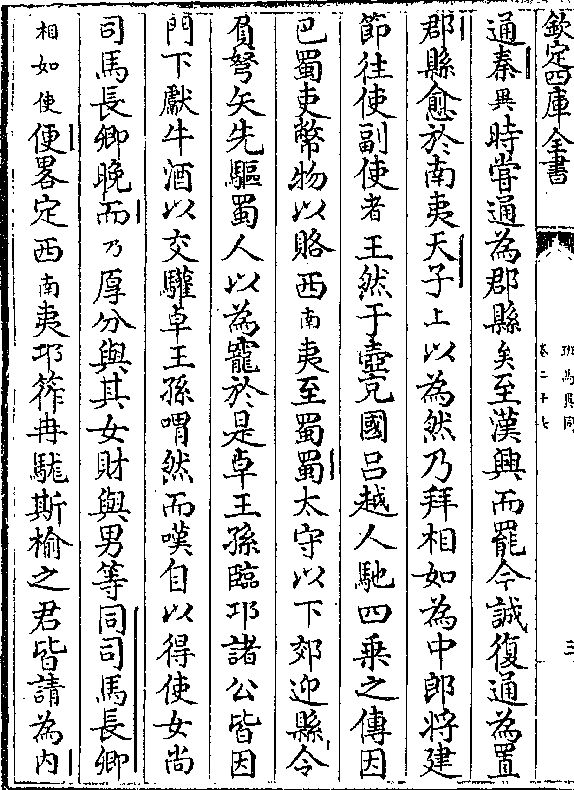 欽定四庫全書
班馬異同
三
通秦異時嘗通為郡縣矣至漢興而罷今誠復通為置
郡縣愈於南夷天子上以為然乃拜相如為中郎將建
節往使副使者王然于壺充國呂越人馳四乘之傳因
巴蜀吏幣物以賂西南夷至蜀蜀太守以下郊迎縣令
負弩矢先驅蜀人以為寵於是卓王孫臨邛諸公皆因
門下獻牛酒以交驩卓王孫喟然而嘆自以得使女尚
司馬長卿晚而乃厚分與其女財與男等同司馬長卿
相如使便畧定西南夷邛筰冉駹斯榆之君皆請為內